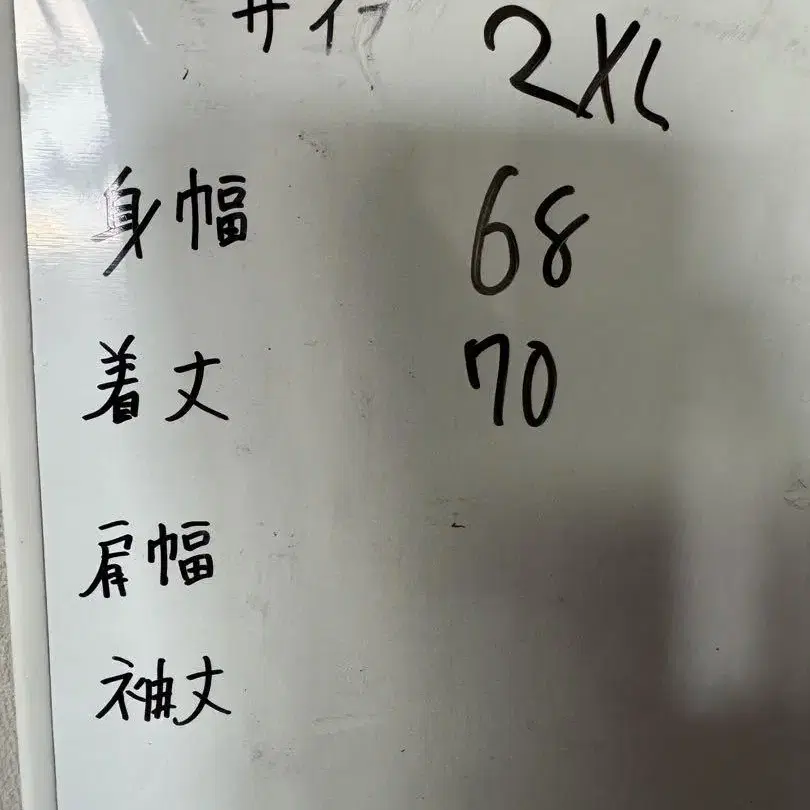 サイズ 2XL
身幅 68
着丈 70
肩幅
袖丈